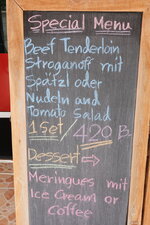 Special Menu
Beef Tenderloin
Stroganoff mit
Spätzl oder
Nudeln and
Tomato Salad
1 Set / 420 B.
Dessert ⇨
Meringues mit
Ice Cream or
Coffee